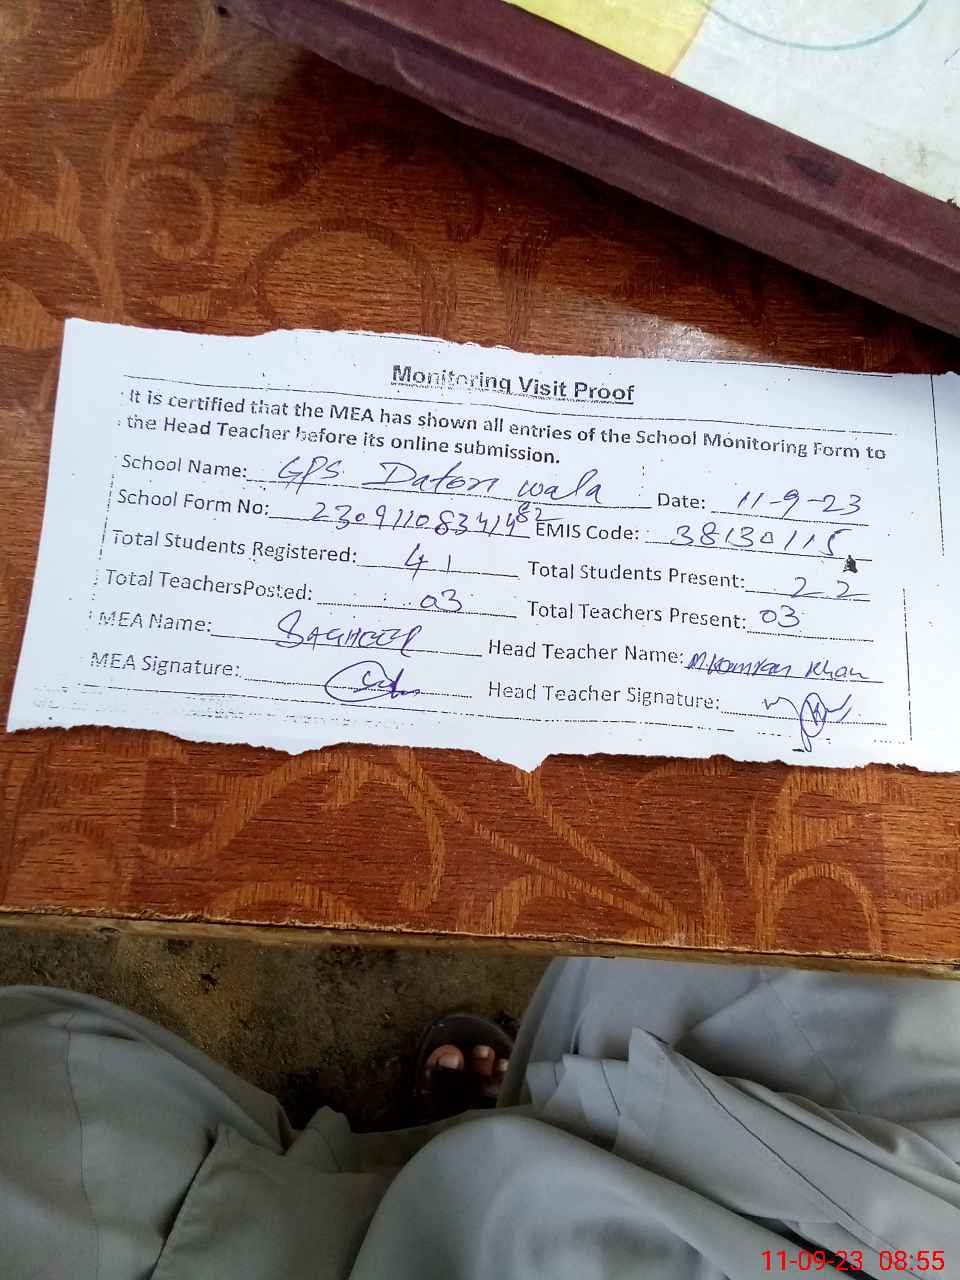 Monitoring Visit Proof
It is certified that the MEA has shown all entries of the School Monitoring Form to
the Head Teacher before its online submission.
School Name: GPS Datori wala Date: 11-9-23
School Form No: 23091108341482 EMIS Code: 38130115
Total Students Registered: 41 Total Students Present: 22
Total TeachersPosted: 03 Total Teachers Present: 03
MEA Name: SAGHEER Head Teacher Name: M.Kamran Khan
MEA Signature: Head Teacher Signature:
11-09-23 08:55